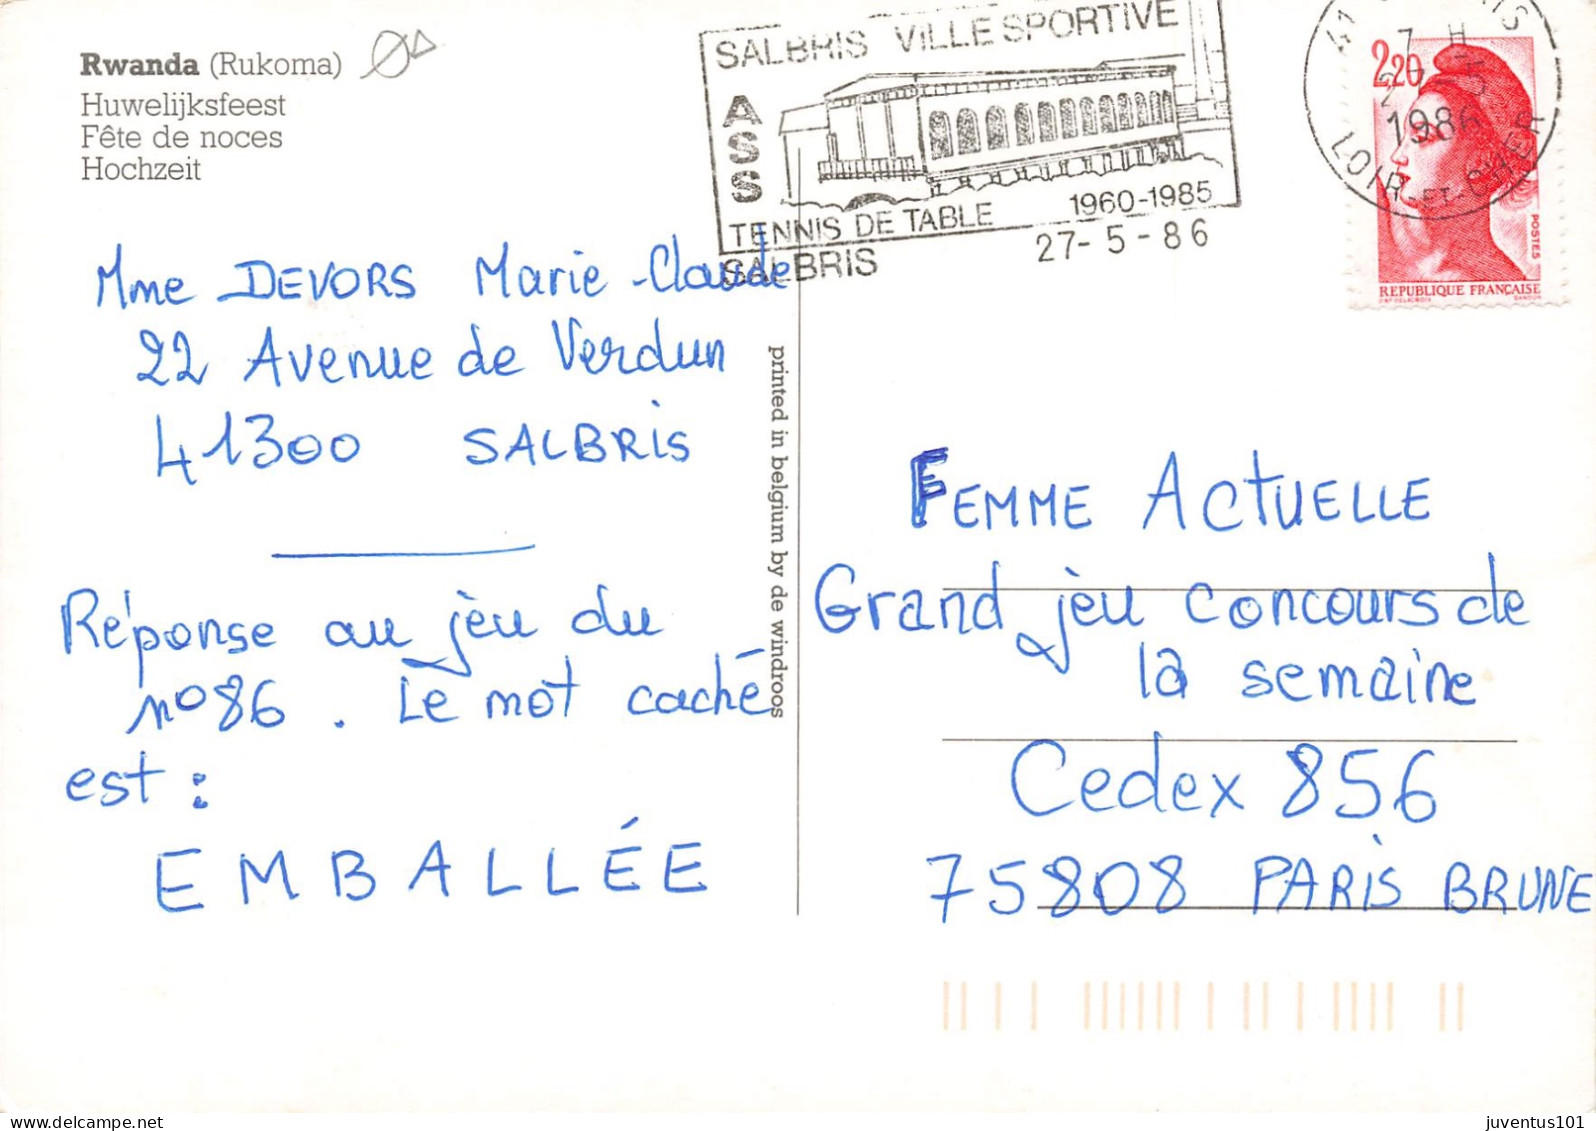 Rwanda (Rukoma)
Huwelijksfeest
Fête de noces
Hochzeit
SALBRIS VILLE SPORTIVE
ASS
TENNIS DE TABLE 1960-1985
SALBRIS 27-5-86
41
7 H
27 5
1986
LOIR-ET-CHER
2,20
POSTES
REPUBLIQUE FRANÇAISE
Mme DEVORS Marie-Claude
22 Avenue de Verdun
41300 SALBRIS
Réponse au jèu du
n°86. Le mot caché
est :
EMBALLÉE
printed in belgium by de windroos
FEMME ACTUELLE
Grand jèu concours de
la semaine
Cedex 856
75808 PARIS BRUNE
juventus101